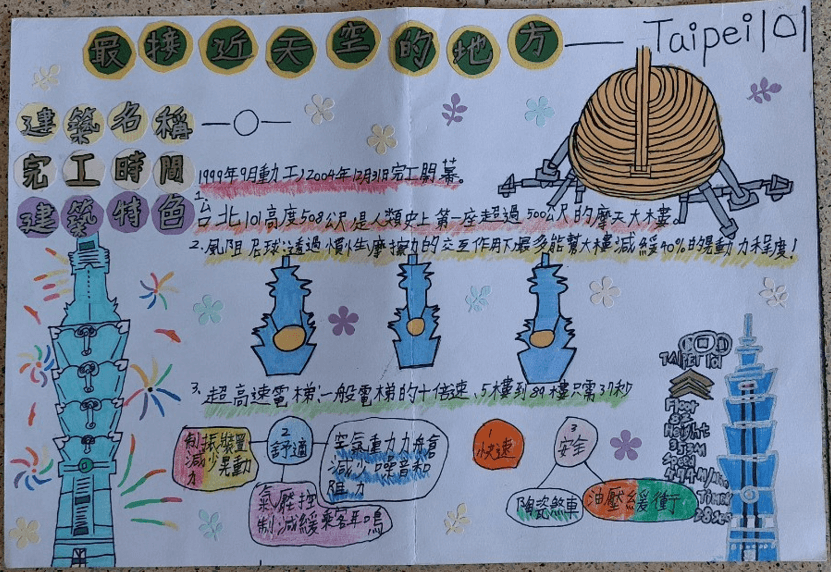 最接近天空的地方 — Taipei 101
建築名稱
完工時間
1999年9月動工,2004年12月31日完工開幕。
建築特色
1.台北101高度508公尺,是人類史上第一座超過500公尺的摩天大樓。
2.風阻尼球:透過慣性摩擦力的交互作用下最多能幫大樓減緩40%的晃動力程度!
3.超高速電梯:一般電梯的十倍速、5樓到89樓只需37秒
1
快速
2
舒適
制振裝置
減少晃動
力
空氣重力力
減少噪音和
阻力
氣壓控
制減緩乘客耳鳴
3
安全
陶瓷煞車
油壓緩衝
TAIPEI 101
Floor
Height